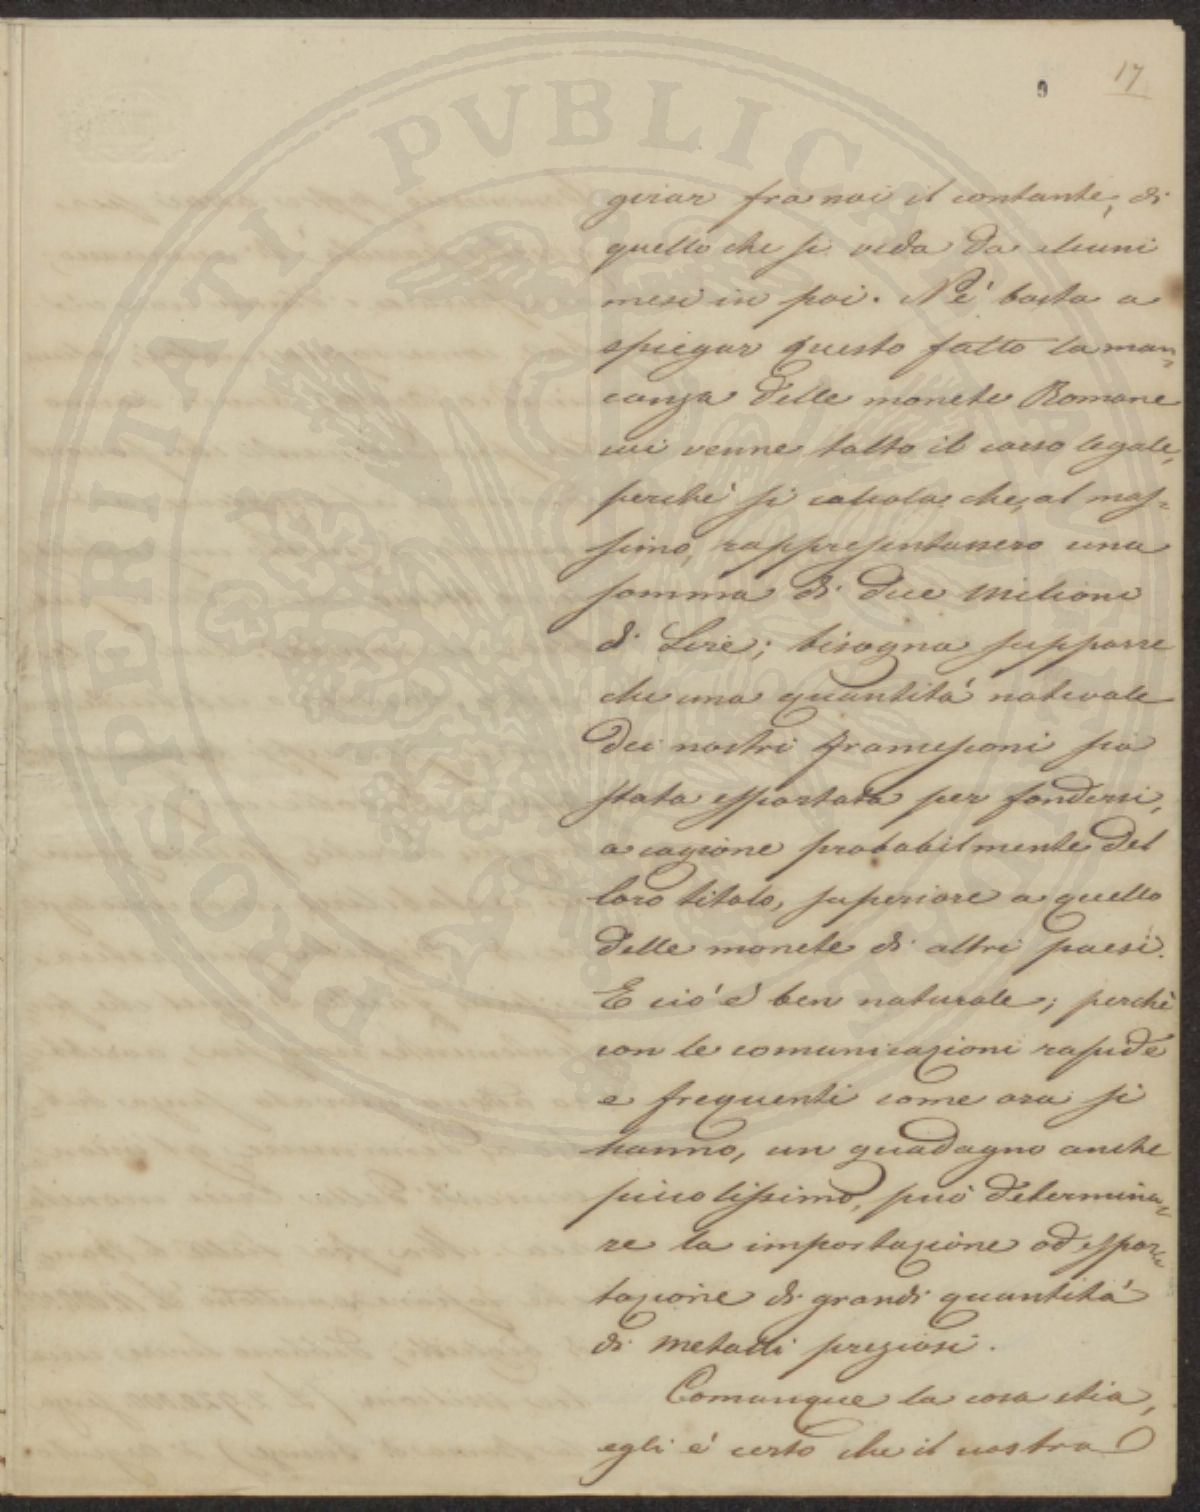 17
9
PROSPERITATI PVBLICAE
girar fra noi il contante, di
quello che si veda da alcuni
mesi in poi. Nè basta a
spiegar questo fatto la man=
canza delle monete Romane
cui venne tolto il corso legale,
perchè si calcola che, al mas=
simo, rappresentassero una
somma di due milioni
di Lire; bisogna supporre
che una quantità notevole
dei nostri francesconi sia
stata esportata per fondersi,
a cagione probabilmente del
loro titolo, superiore a quello
delle monete di altri paesi.
E ciò è ben naturale; perchè
con le comunicazioni rapide
e frequenti come ora si
hanno, un guadagno anche
piccolissimo, può determina=
re la importazione od espor=
tazione di grandi quantità
di metalli preziosi.
Comunque la cosa stia,
egli è certo che il nostro